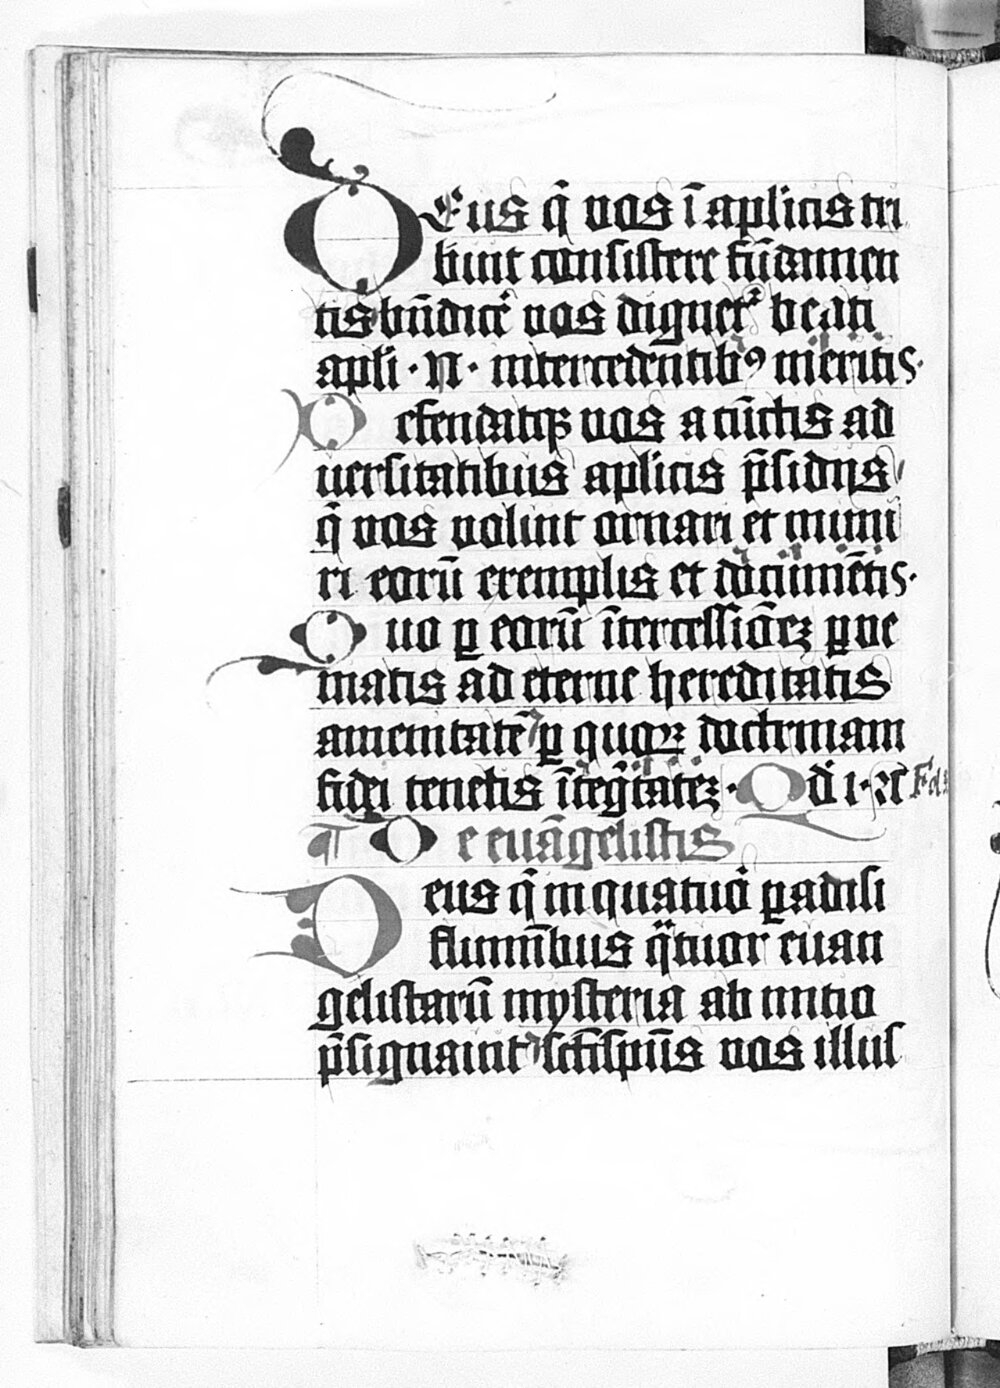 Deus q̄ vos ī aplicis tri
buit consistere fūdamen
tis bn̄dicē vos dignet᷑ beati
apli · N · intercedentibꝰ meritis·
Defendatqꝫ vos a cūctis ad
uersitatibus aplicis p̄sidijs
q̄ vos voluit ornari et muni
ri eorū exemplis et documētis·
Quo ꝑ eorū ītercessiōēꝫ ꝑue
niatis ad eterne hereditatis
amenitatē ꝑ quoꝝ doctrinam
fidei tenetis ītegritateꝫ· Qd́ i·
¶ De euāgelistis
Deus q̄ in quatuor ꝑadisi
fluminibus quatuor euan
gelistarū mysteria ab initio
p̄signauit sc̄ispūs vos illus